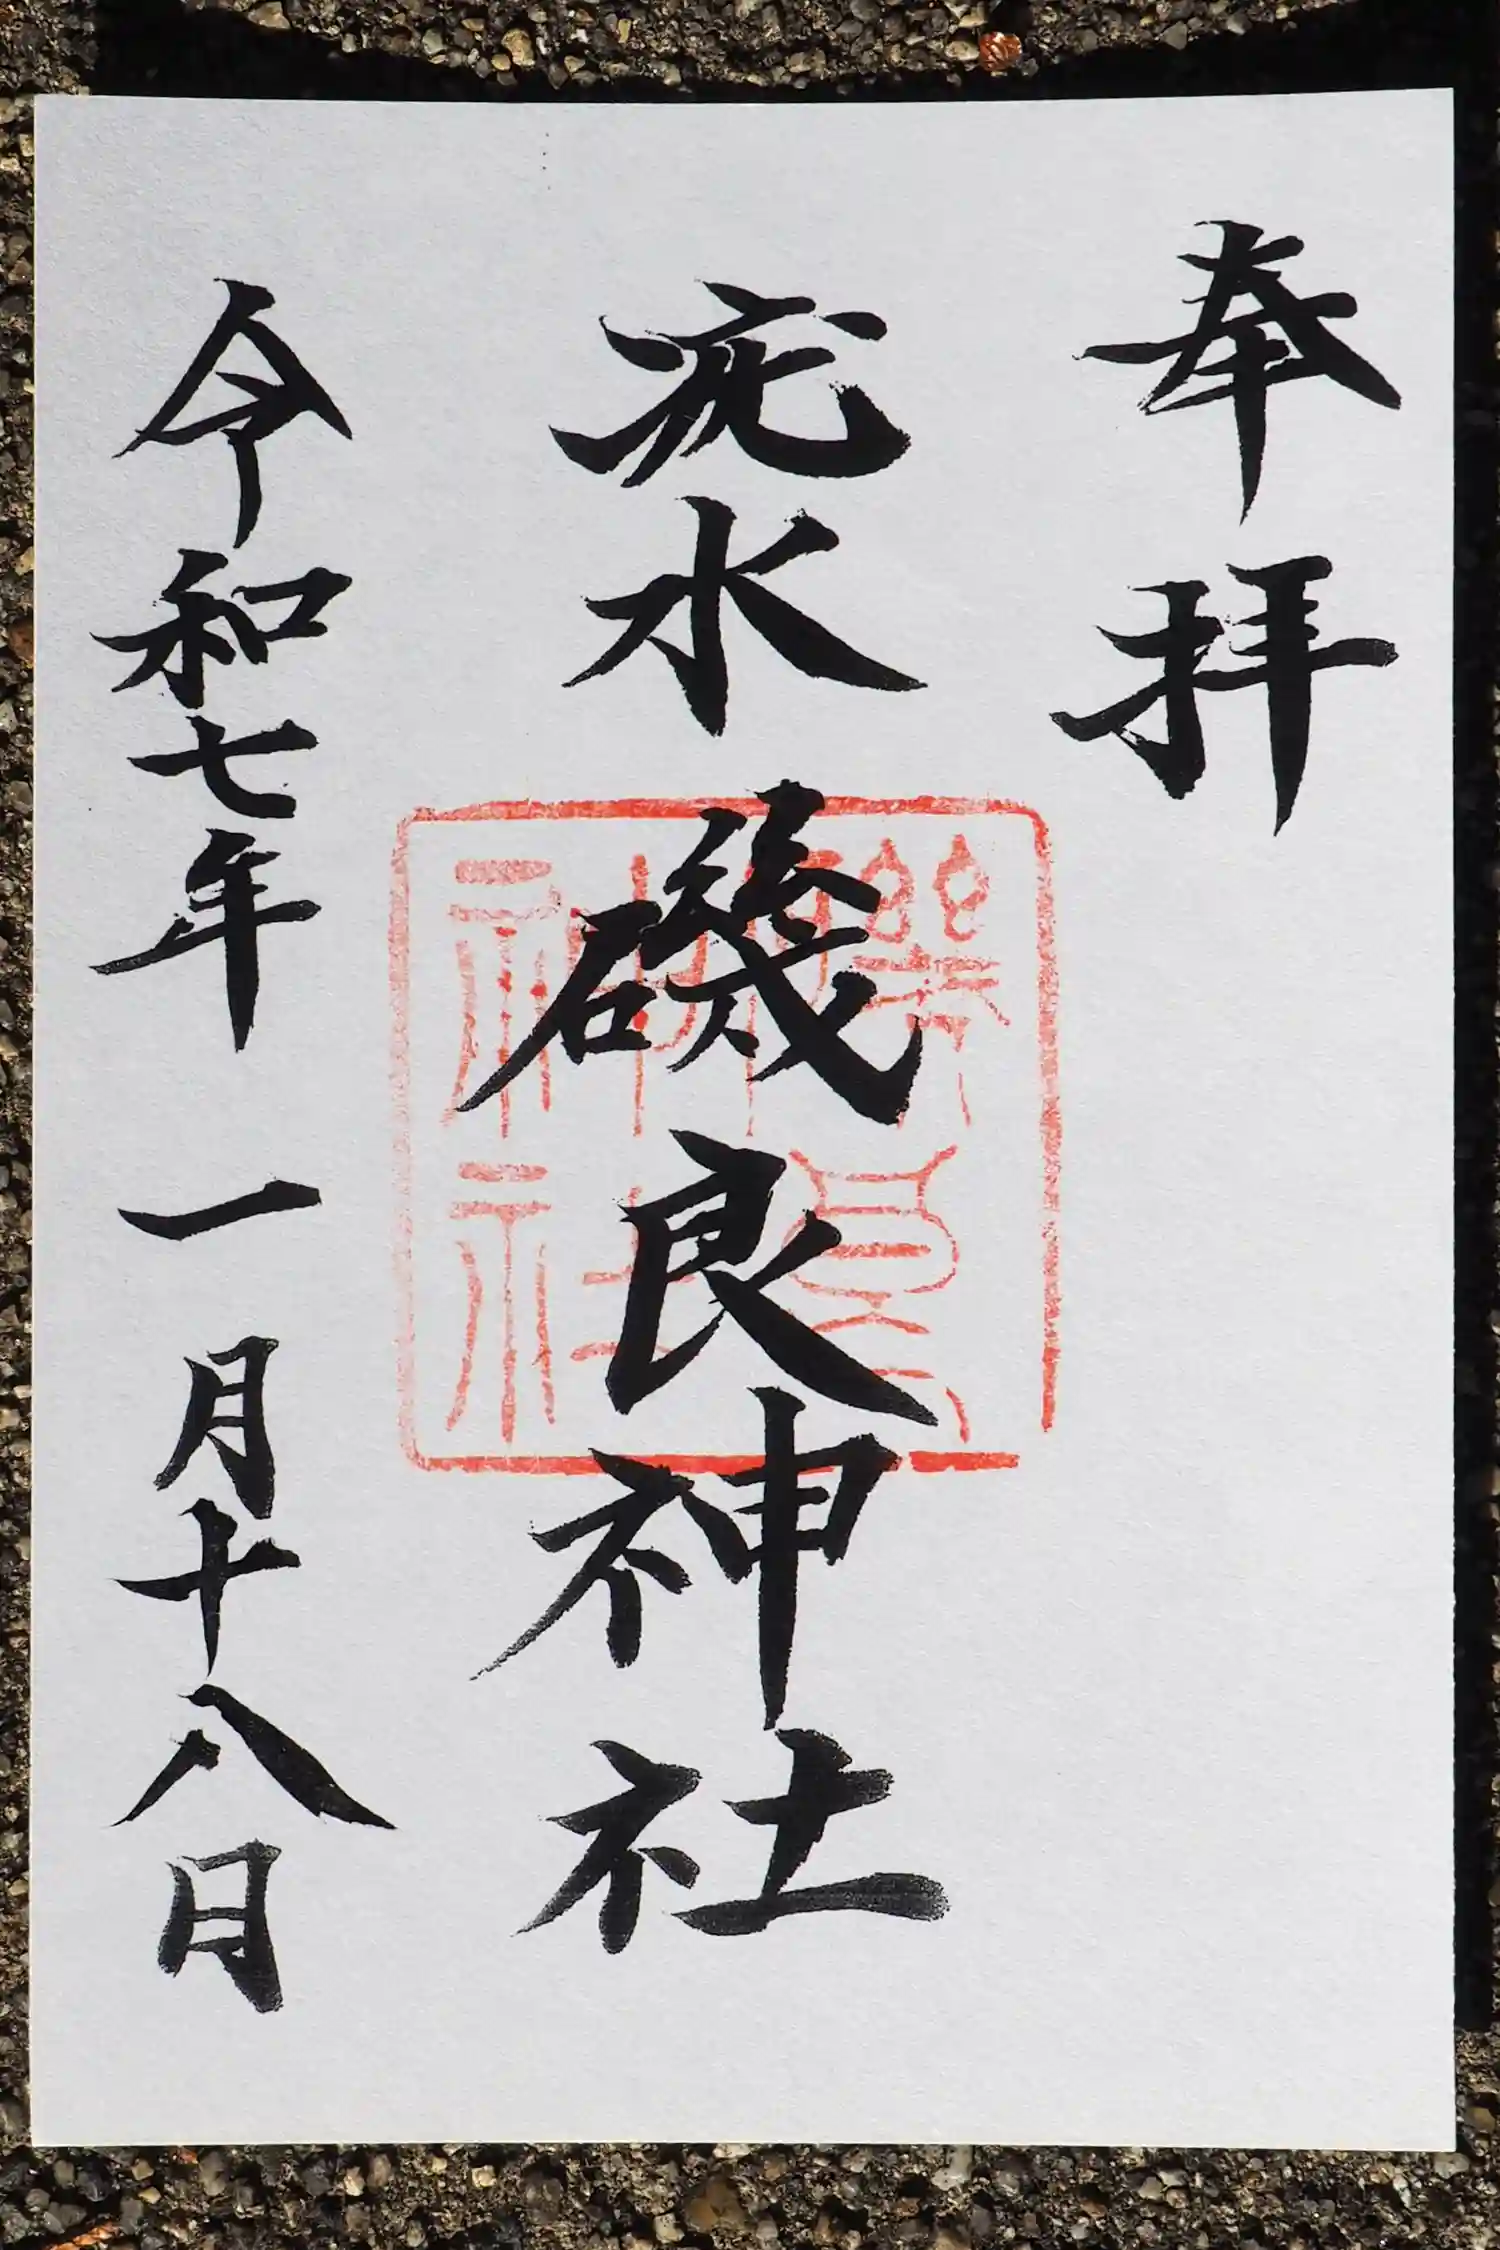 奉拝
疣水磯良神社
令和七年一月十八日
磯良
神社